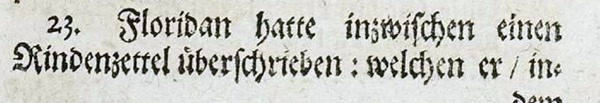 23. Floridan hatte inzwischen einen
Rindenzettel überschrieben : welchen er / in⸗
dem